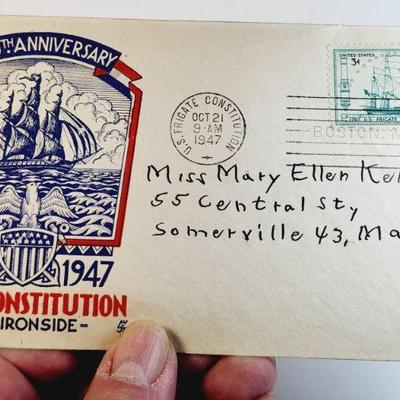 TH ANNIVERSARY
1947
CONSTITUTION
IRONSIDE-
U.S. FRIGATE CONSTITUTION
OCT 21
9-AM
1947
UNITED STATES
3¢
U.S. FRIGATE
BOSTON, M
Miss Mary Ellen Kel
55 Central St,
Somerville 43, Ma